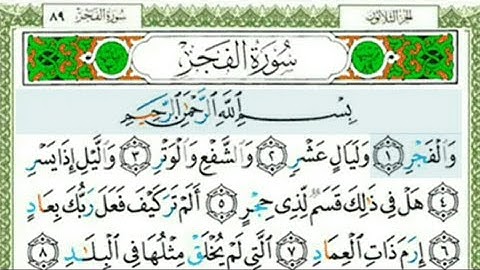 الجزء الثلاثون سورة الفجر ٨٩
سُورَةُ الفَجْرِ
بِسْمِ اللَّهِ الرَّحْمَٰنِ الرَّحِيمِ
وَالْفَجْرِ ١ وَلَيَالٍ عَشْرٍ ٢ وَالشَّفْعِ وَالْوَتْرِ ٣ وَاللَّيْلِ إِذَا يَسْرِ
٤ هَلْ فِي ذَٰلِكَ قَسَمٌ لِّذِي حِجْرٍ ٥ أَلَمْ تَرَ كَيْفَ فَعَلَ رَبُّكَ بِعَادٍ
٦ إِرَمَ ذَاتِ الْعِمَادِ ٧ الَّتِي لَمْ يُخْلَقْ مِثْلُهَا فِي الْبِلَادِ ٨